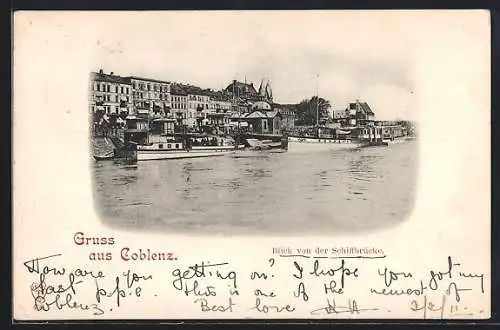 Gruss
aus Coblenz.
Blick von der Schiffbrücke.
How are you getting on? I hope you got my
last p.p.c. this is one of the newest of
Coblenz. Best love